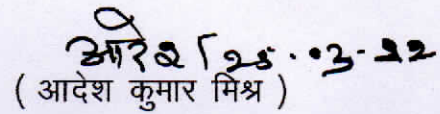 आदेश 25.03.22
( आदेश कुमार मिश्र )